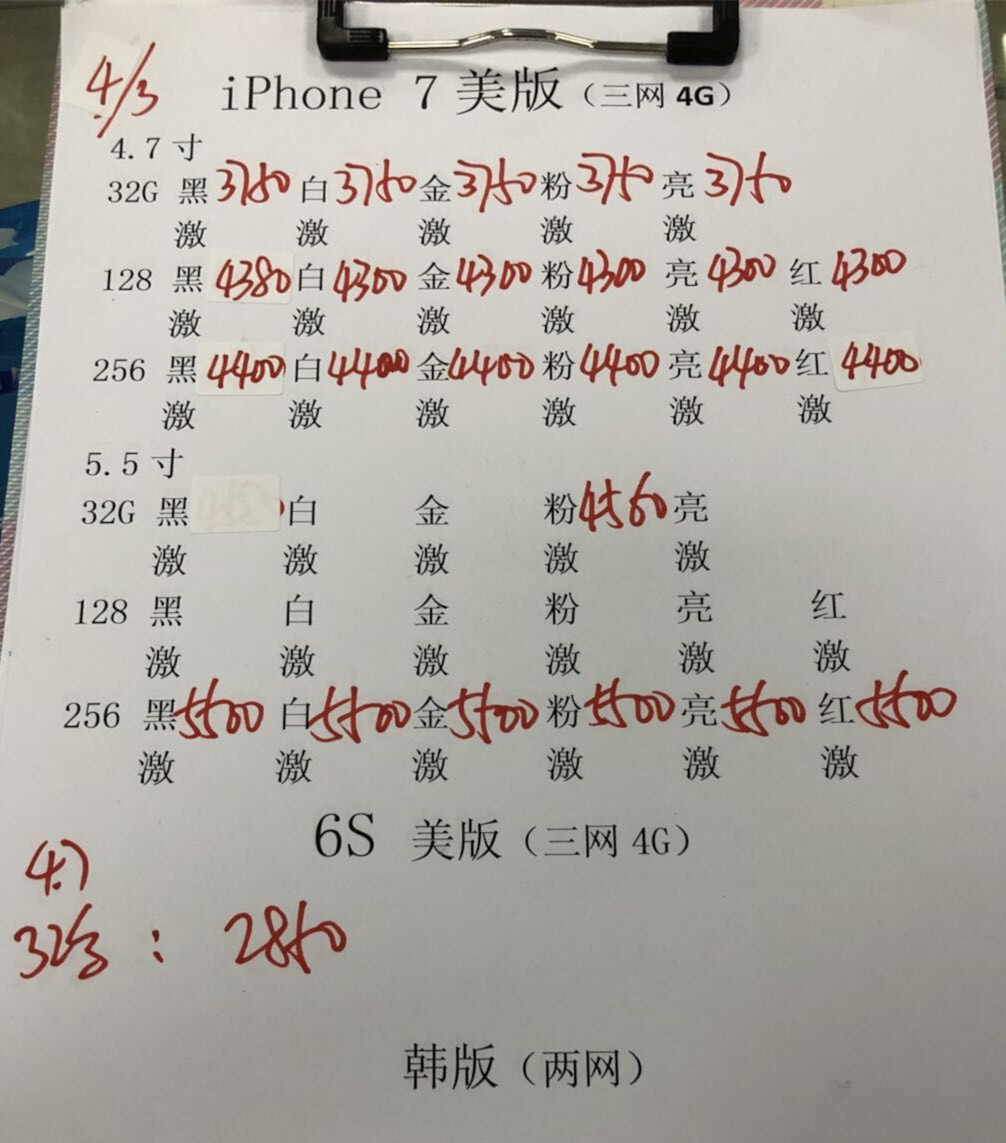 4/3
iPhone 7 美版（三网 4G）
4.7 寸
32G 黑 3750 白 3750 金 3750 粉 3750 亮 3750
激 激 激 激 激
128 黑 4380 白 4300 金 4300 粉 4300 亮 4300 红 4300
激 激 激 激 激 激
256 黑 4400 白 4400 金 4400 粉 4400 亮 4400 红 4400
激 激 激 激 激 激
5.5 寸
32G 黑 白 金 粉 4560 亮
激 激 激 激 激
128 黑 白 金 粉 亮 红
激 激 激 激 激 激
256 黑 5500 白 5500 金 5500 粉 5500 亮 5500 红 5500
激 激 激 激 激 激
6S 美版（三网 4G）
4.7
32 : 2850
韩版（两网）